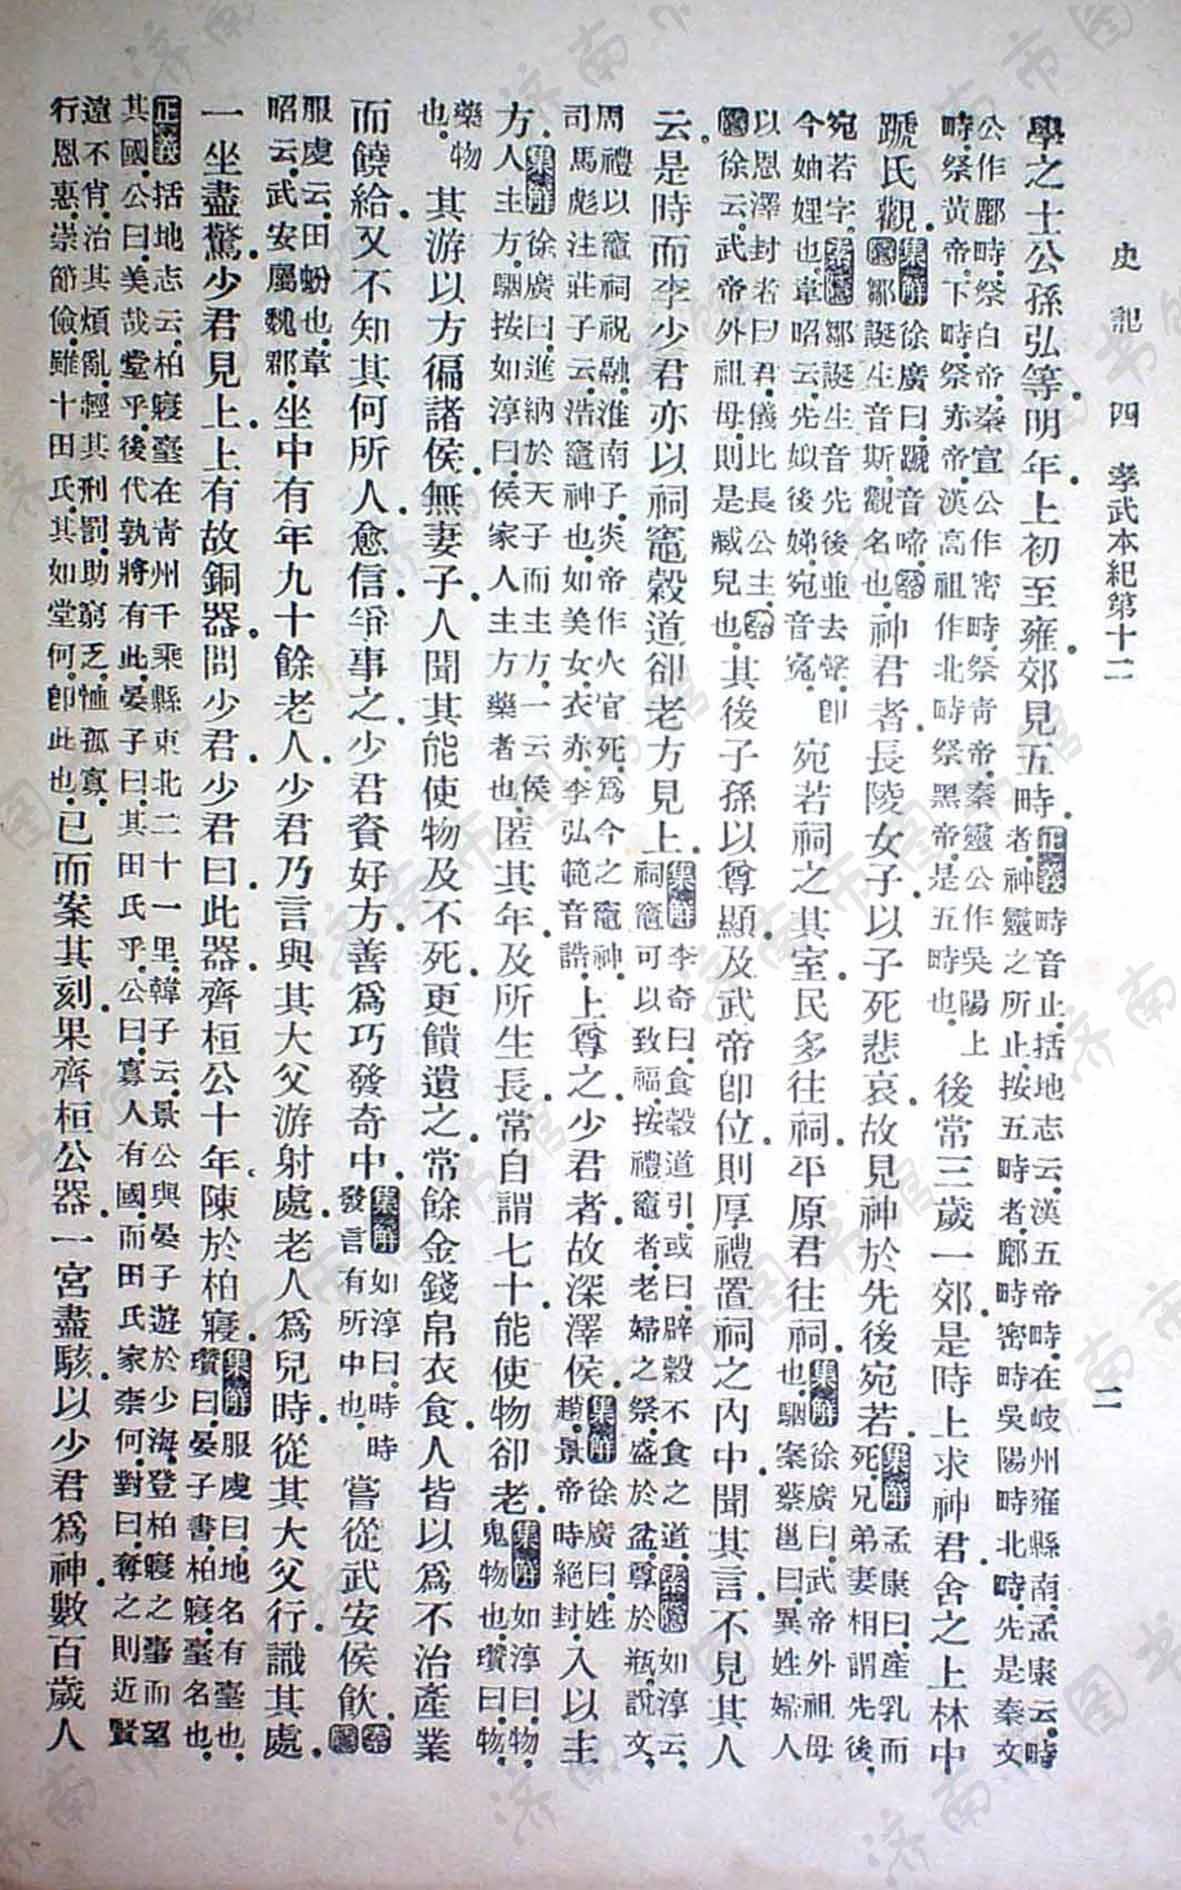 史記四 孝武本紀第十二 二
學之士公孫弘等.明年.上初至雍.郊見五畤.正義畤音止.括地志云.漢五帝畤.在岐州雍縣南.孟康云.畤者.神靈之所止.按五畤者.鄜畤密畤吳陽畤北畤.先是秦文
公作鄜畤.祭白帝.秦宣公作密畤.祭青帝.秦靈公作吳陽上畤.祭黃帝.下畤.祭赤帝.漢高祖作北畤祭黑帝.是五畤也.後常三歲一郊.是時上求神君.舍之上林中
蹏氏觀.集解徐廣曰.蹏音啼.索隱鄒誕生音斯.觀名也.神君者.長陵女子.以子死悲哀.故見神於先後宛若.集解孟康曰.產乳而死.兄弟妻相謂先後.
宛若字.索隱鄒誕生音先後並去聲.卽今妯娌也.韋昭云.先姒後娣.宛音寃.宛若祠之其室.民多往祠.平原君往祠.集解徐廣曰.武帝外祖母也.駰案蔡邕曰.異姓婦人
以恩澤封者曰君.儀比長公主.索隱徐云.武帝外祖母.則是臧兒也.其後子孫以尊顯.及武帝卽位.則厚禮置祠之內中.聞其言.不見其人
云.是時而李少君亦以祠竈穀道卻老方見上.集解李奇曰.食穀道引.或曰.辟穀不食之道.索隱如淳云.祠竈可以致福.按禮竈者.老婦之祭.盛於盆.尊於瓶.說文.
周禮以竈祠祝融.淮南子.炎帝作火官.死爲今之竈神.司馬彪注莊子云.浩竈神也.如美女.衣赤.李弘範音誥.上尊之.少君者.故深澤侯.集解徐廣曰.姓趙.景帝時絕封.入以主
方.集解徐廣曰.進納於天子而主方.一云侯人主方.駰按如淳曰.侯家人主方藥者也.匿其年.及所生長.常自謂七十.能使物卻老.集解如淳曰.物.鬼物也.瓚曰.物.
藥物也.其游以方徧諸侯.無妻子.人聞其能使物及不死.更饋遺之.常餘金錢帛衣食.人皆以爲不治產業
而饒給.又不知其何所人.愈信.爭事之.少君資好方.善爲巧發奇中.集解如淳曰.時時發言有所中也.嘗從武安侯飮.索隱
服虔云.田蚡也.韋昭云.武安屬魏郡.坐中有年九十餘老人.少君乃言與其大父游射處.老人爲兒時.從其大父行.識其處.
一坐盡驚.少君見上.上有故銅器.問少君.少君曰.此器.齊桓公十年.陳於柏寢.集解服虔曰.地名有臺也.瓚曰.晏子書.柏寢.臺名也.
正義括地志云.柏寢臺.在青州千乘縣東北二十一里.韓子云.景公與晏子遊於少海.登柏寢之臺而望其國.公曰.美哉堂乎.後代孰將有此.晏子曰.其田氏乎.公曰.寡人有國.而田氏家柰何.對曰.奪之則近賢
遠不肖.治其煩亂.輕其刑罰.助窮乏.恤孤寡.行恩惠.崇節儉.雖十田氏.其如堂何.卽此也.已而案其刻.果齊桓公器.一宮盡駭.以少君爲神.數百歲人